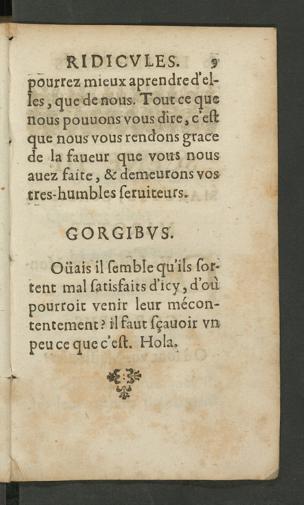 RIDICVLES. 9
pourrez mieux aprendre d'el-
les, que de nous. Tout ce que
nous pouuons vous dire, c'eſt
que nous vous rendons grace
de la faueur que vous nous
auez faite, & demeurons vos
tres-humbles ſeruiteurs.
GORGIBVS.
Oüais il ſemble qu'ils ſor-
tent mal ſatisfaits d'icy, d'où
pourroit venir leur mécon-
tentement? il faut ſçauoir vn
peu ce que c'eſt. Hola.